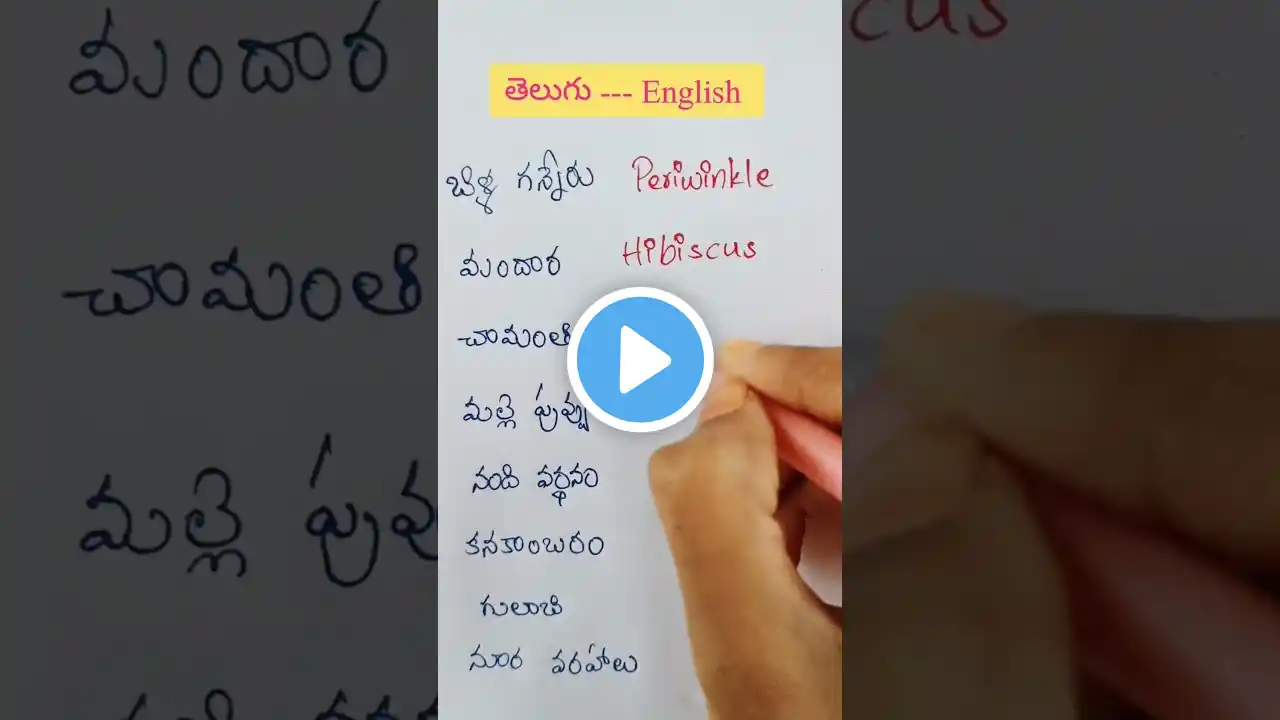 తెలుగు --- English
బిళ్ళ గన్నేరు Periwinkle
మందార Hibiscus
చామంతి
మల్లె పువ్వు
నంది వర్ధనం
కనకాంబరం
గులాబి
నూర వరహాలు